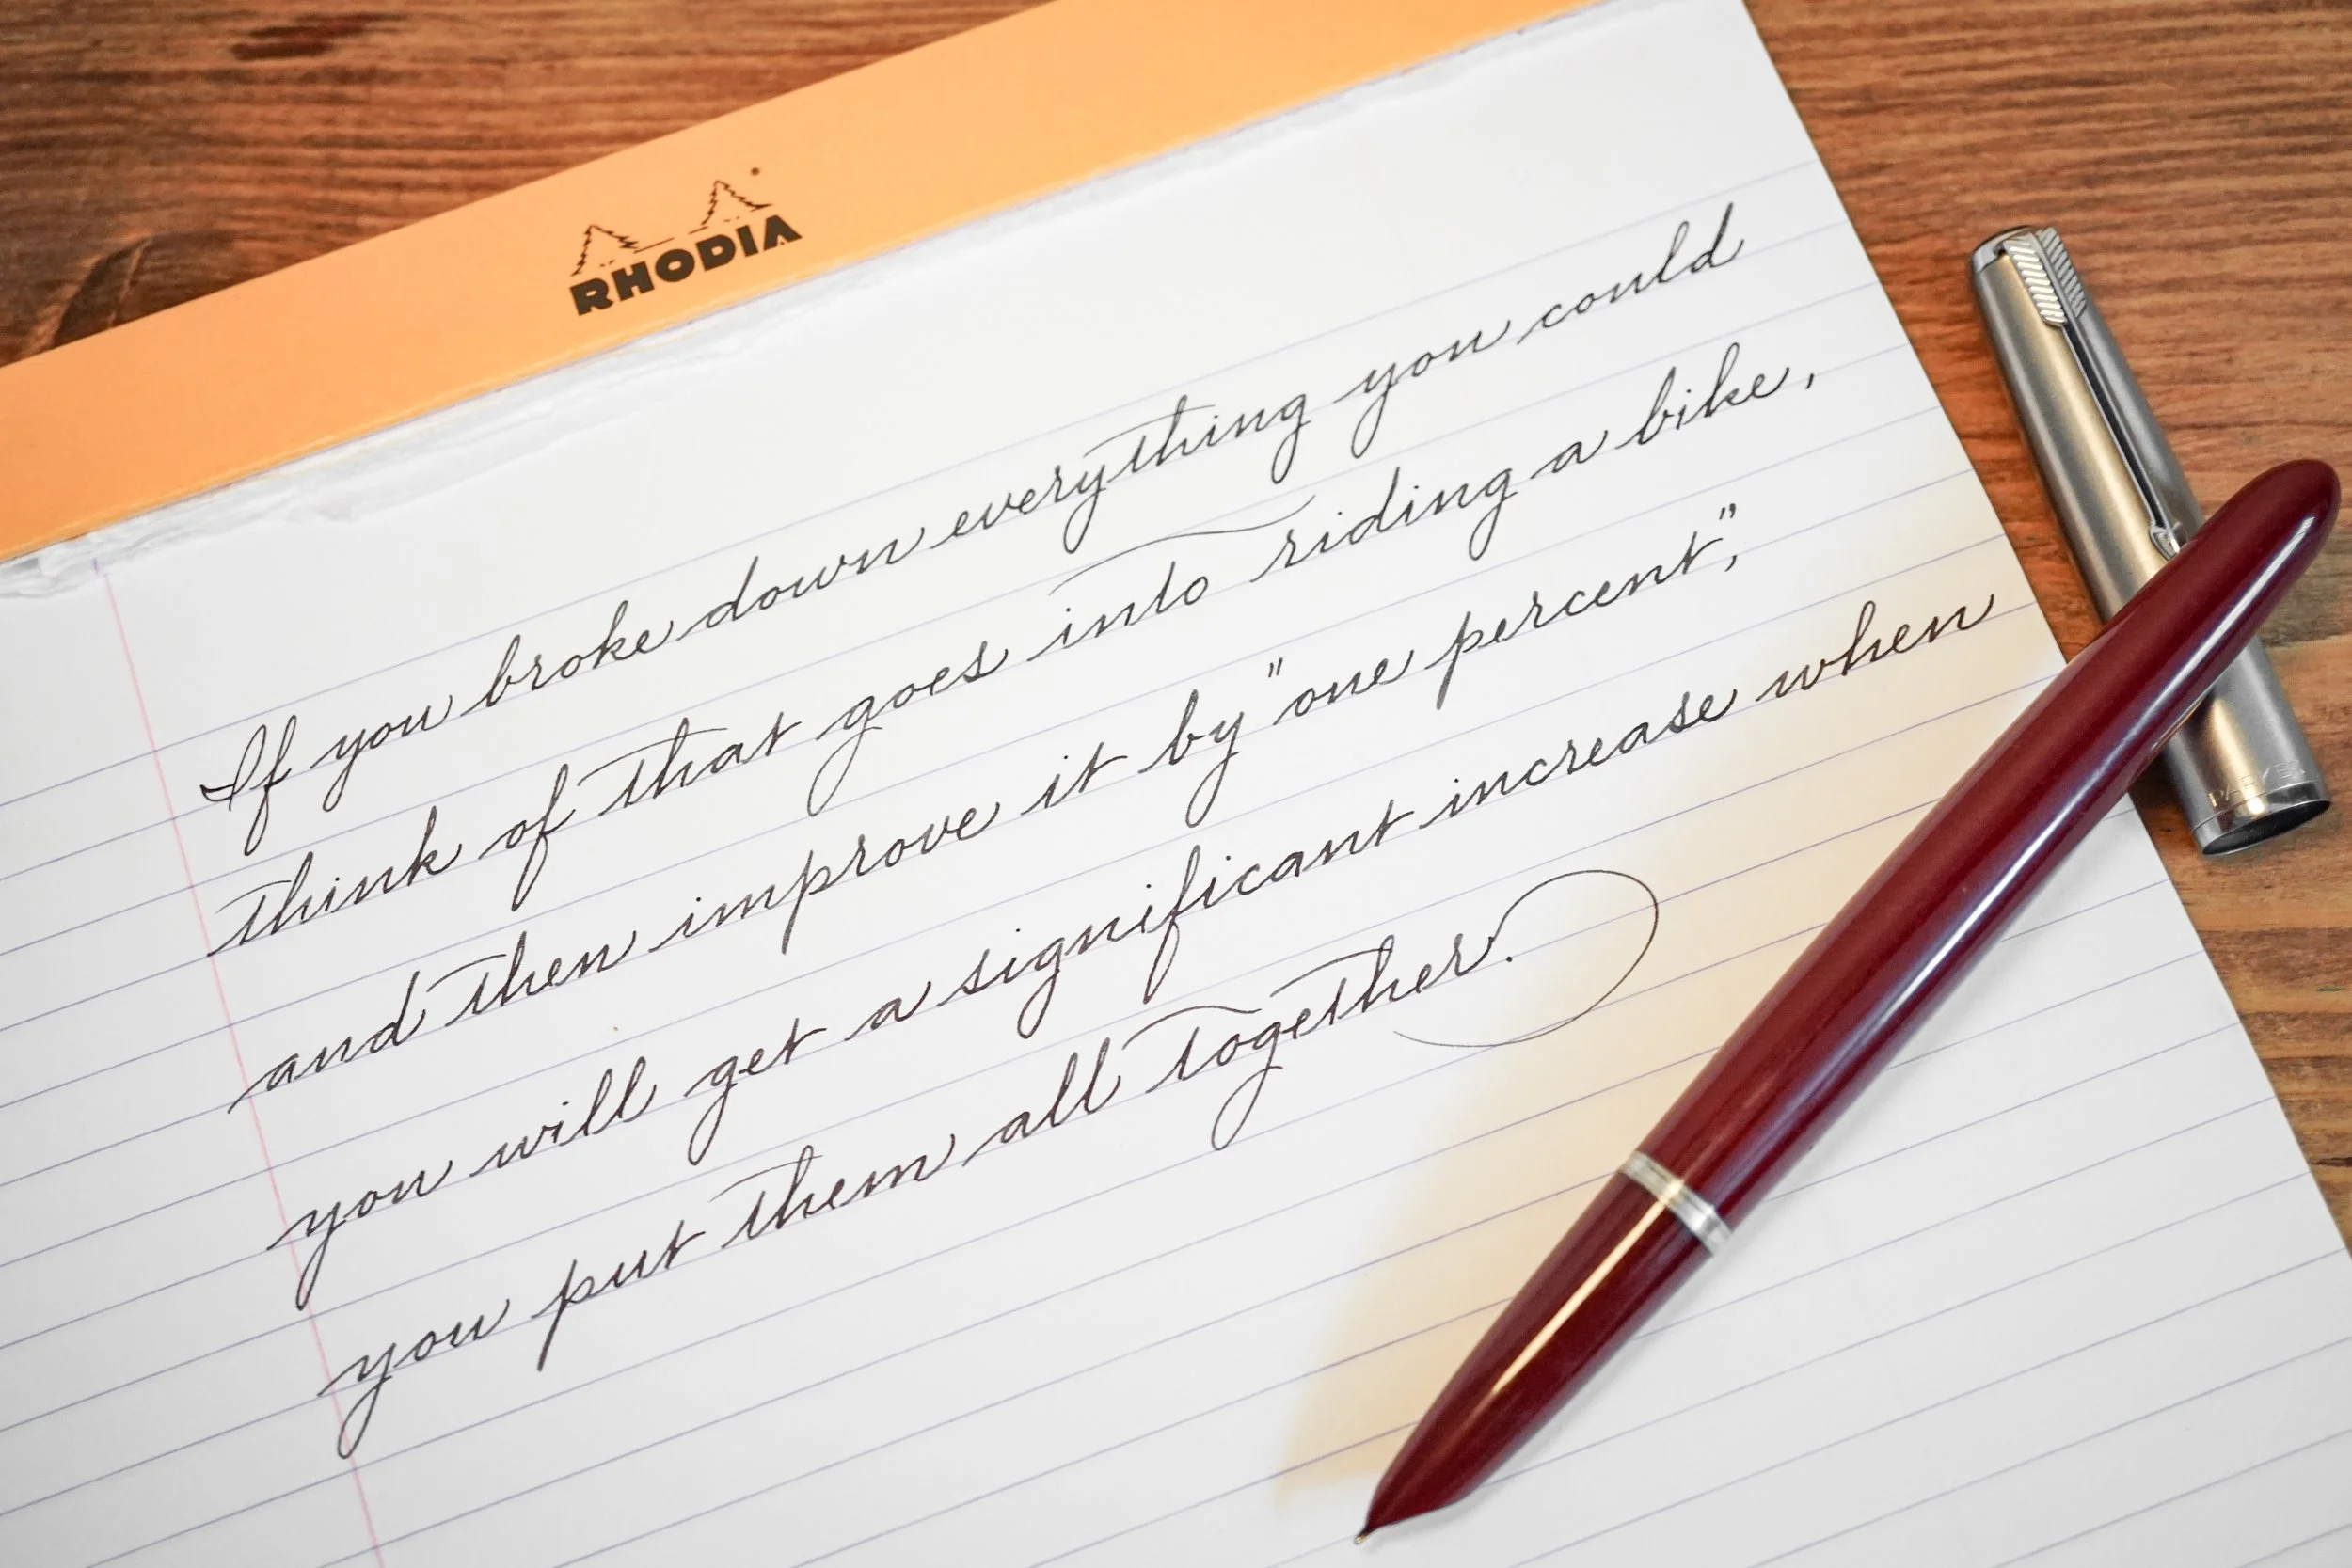 RHODIA
If you broke down everything you could
think of that goes into riding a bike,
and then improve it by "one percent",
you will get a significant increase when
you put them all together.
PARKER